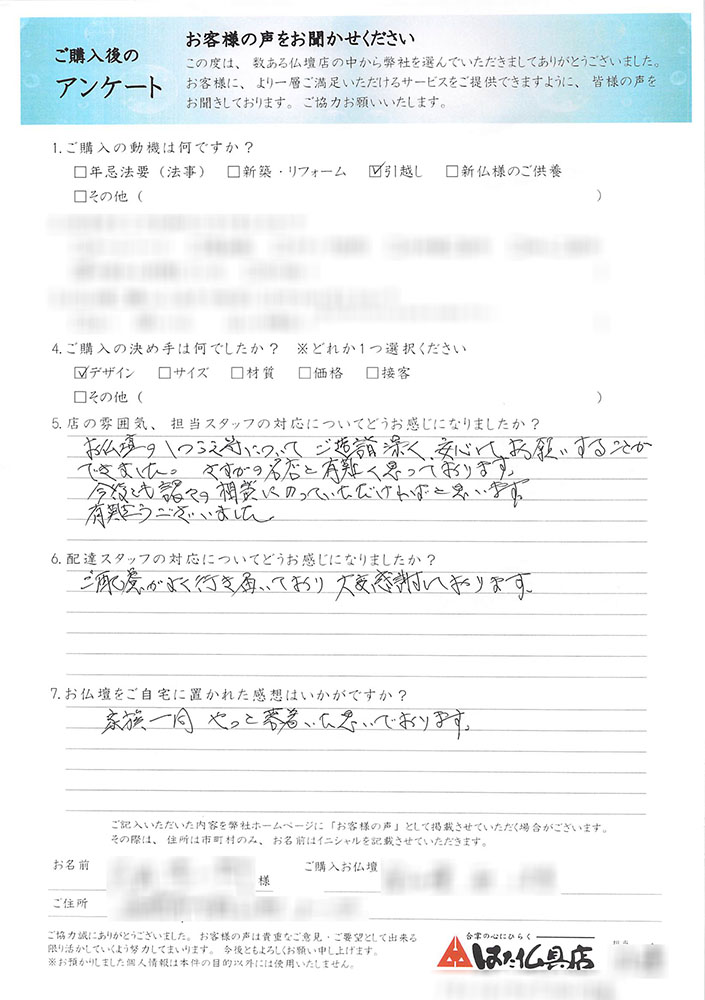 ご購入後の
アンケート
お客様の声をお聞かせください
この度は、数ある仏壇店の中から弊社を選んでいただきましてありがとうございました。
お客様に、より一層ご満足いただけるサービスをご提供できますように、皆様の声を
お聞きしております。ご協力お願いいたします。
1.ご購入の動機は何ですか?
□年忌法要(法事) □新築・リフォーム ☑引越し □新仏様のご供養
□その他( )
4.ご購入の決め手は何でしたか? ※どれか1つ選択ください
☑デザイン □サイズ □材質 □価格 □接客
□その他( )
5.店の雰囲気、担当スタッフの対応についてどうお感じになりましたか?
お仏壇のしつらえ等について ご造詣深く、安心してお願いすることが
できました。さすがの名店と有難く思っております。
今後とも諸々の相談にのっていただければと思います。
有難うございました
6.配達スタッフの対応についてどうお感じになりましたか?
ご配慮がよく行き届いており 大変感謝しております。
7.お仏壇をご自宅に置かれた感想はいかがですか?
家族一同 やっと落着いた思いでおります。
ご記入いただいた内容を弊社ホームページに「お客様の声」として掲載させていただく場合がございます。
その際は、住所は市町村のみ、お名前はイニシャルを記載させていただきます。
お名前 様 ご購入お仏壇
ご住所
ご協力誠にありがとうございました。お客様の声は貴重なご意見・ご要望として出来る
限り活かしていくよう努力してまいります。今後ともよろしくお願い申し上げます。
※お預かりしました個人情報は本件の目的以外には使用いたしません。
合掌の心にひらく
はた仏具店
担当